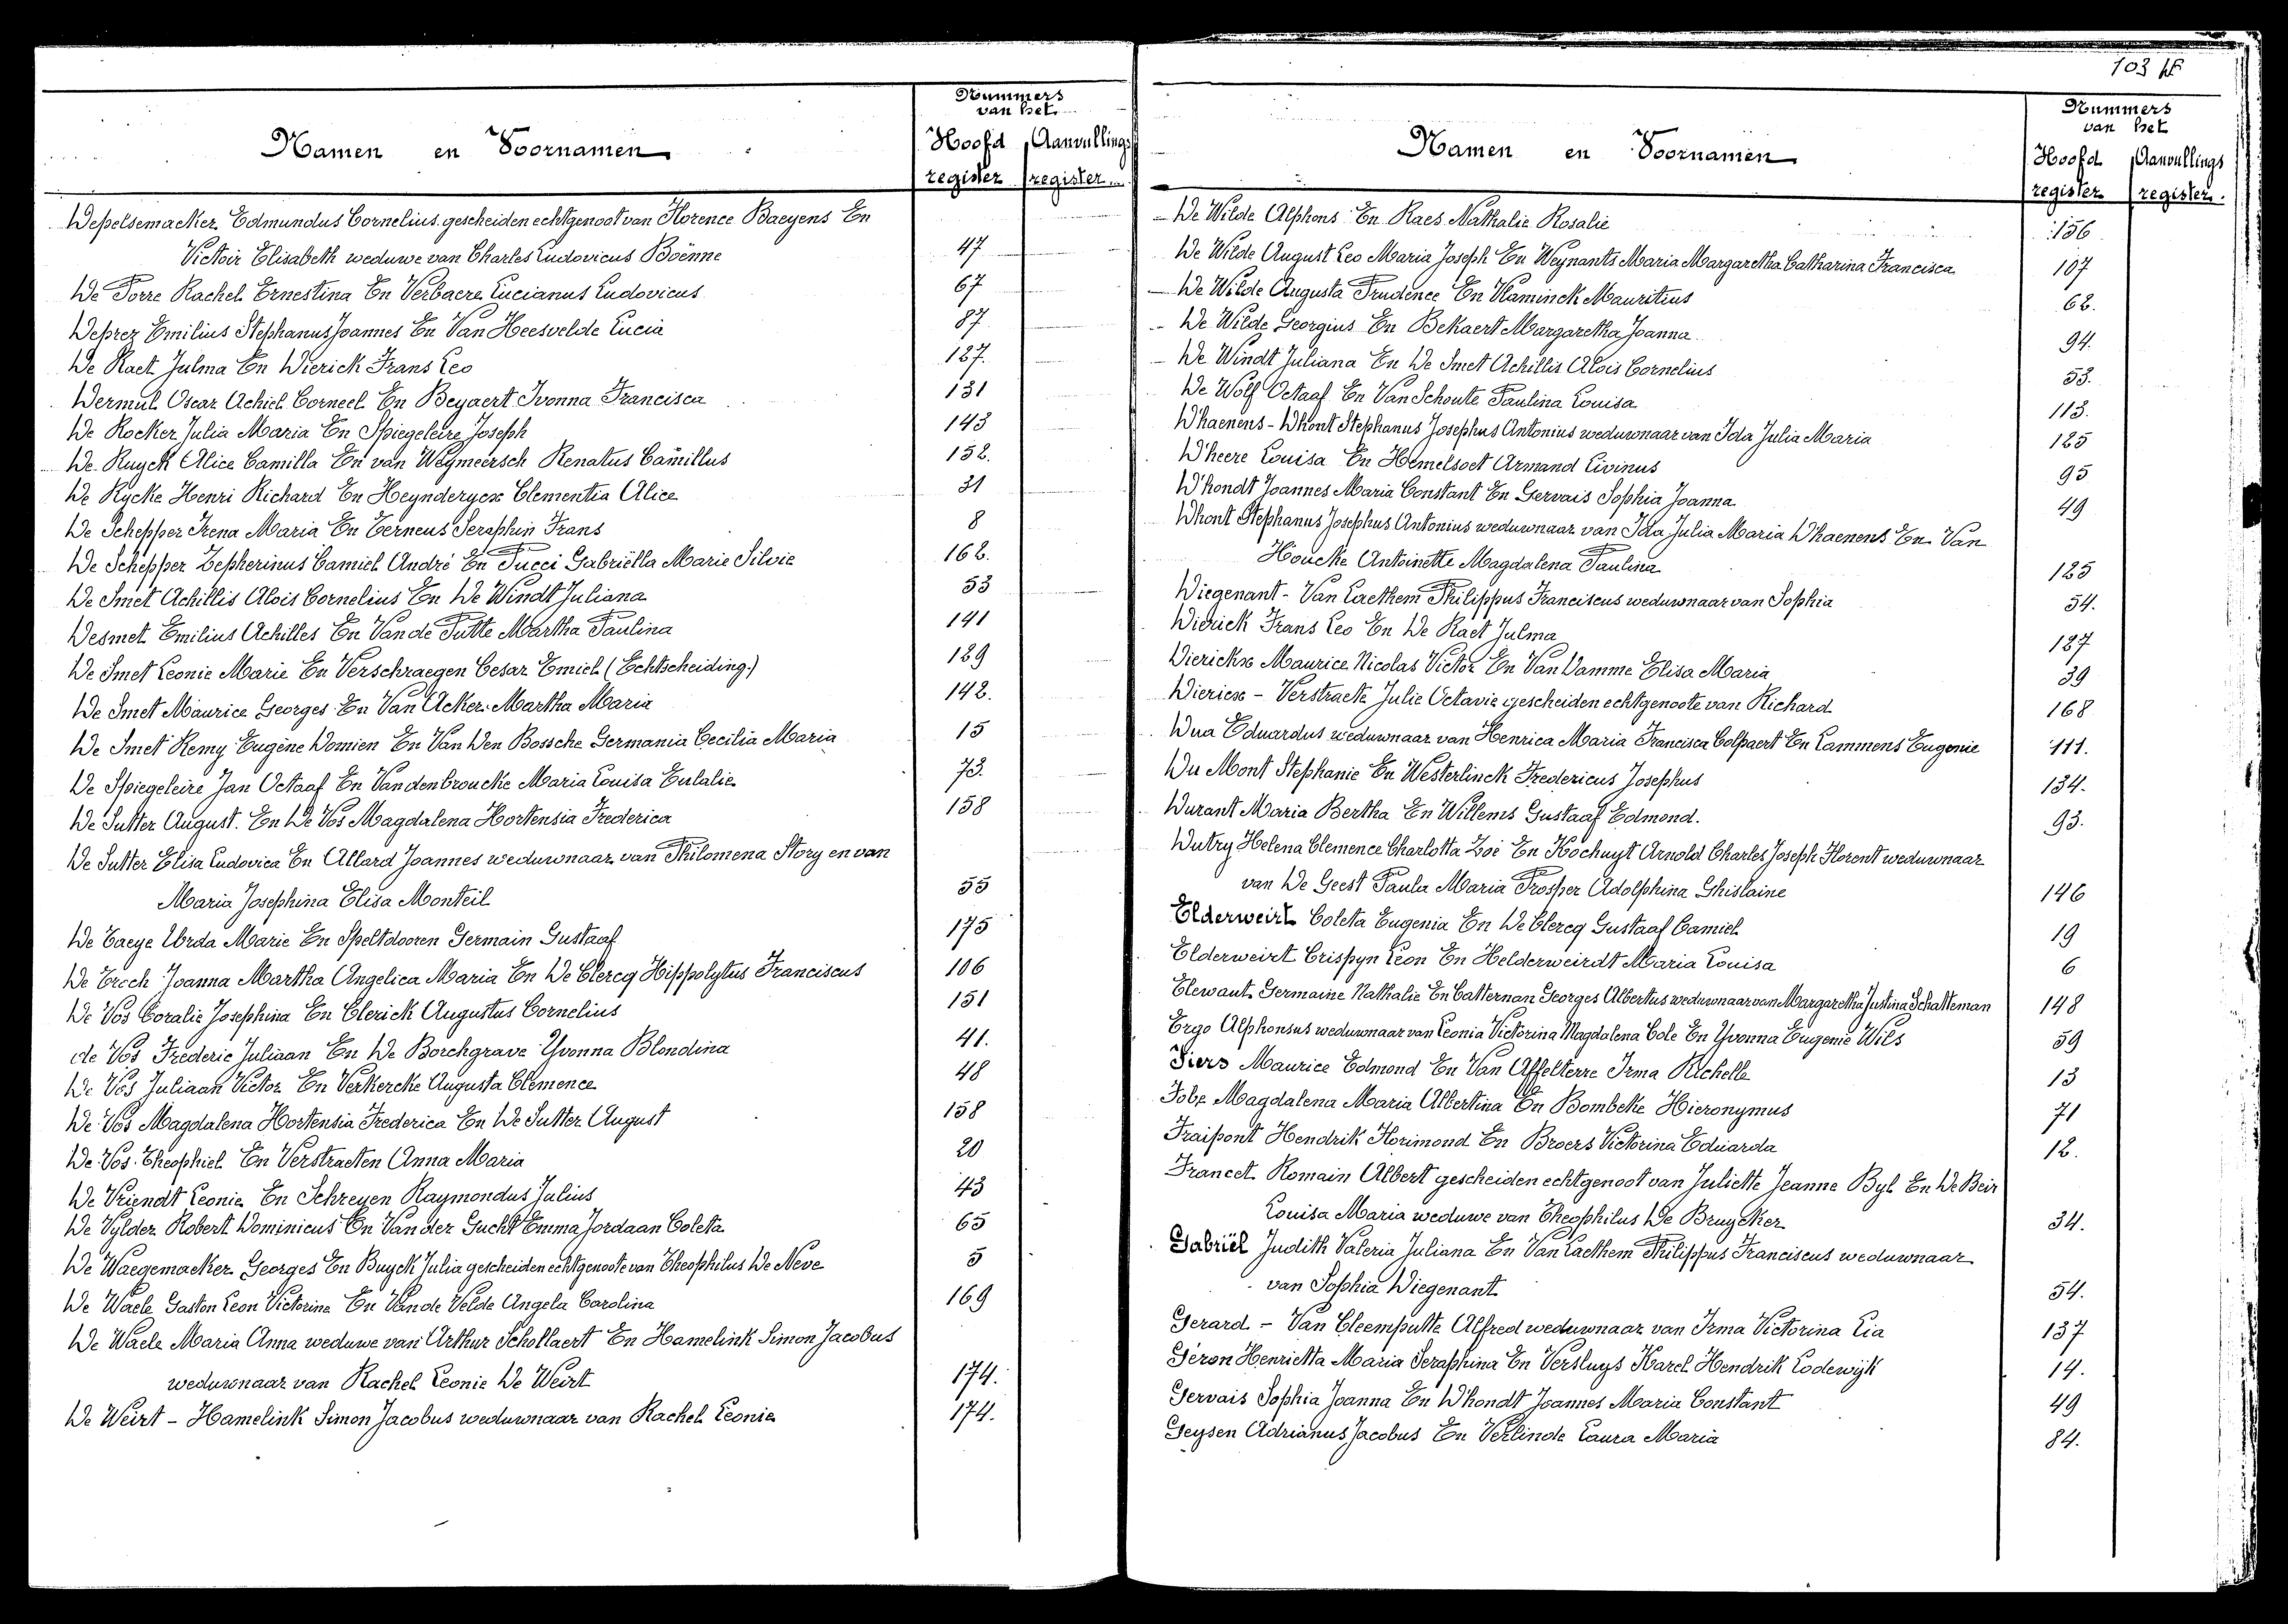 Nummers
van het
Namen en Voornamen
Hoofd Aanvullings
register register
Depelsemacker Edmundus Cornelius gescheiden echtgenoot van Florence Baeyens En
Victoir Elisabeth weduwe van Charles Ludovicus Boënne 47
De Porre Rachel Ernestina En Verbaere Lucianus Ludovicus 67
Deprez Emilius Stephanus Joannes En Van Heesvelde Lucia 87
De Raet Julma En Dierick Frans Leo 127.
Dermul Oscar Achiel Corneel En Beyaert Ivonna Francisca 131
De Rocker Julia Maria En Spiegeleire Joseph 143
De Ruyck Alice Camilla En van Weymeersch Renatus Camillus 152.
De Rycke Henri Richard En Heynderycx Clementia Alice 31
De Schepper Irena Maria En Terneus Seraphin Frans 8
De Schepper Zepherinus Camiel André En Pucci Gabriëlla Marie Silvie 162.
De Smet Achillis Alois Cornelius En De Windt Juliana 53
Desmet Emilius Achilles En Van de Putte Martha Paulina 141
De Smet Leonie Marie En Verschraegen Cesar Emiel (Echtscheiding.) 129
De Smet Maurice Georges En Van Acker Martha Maria 142.
De Smet Remy Eugène Domien En Van Den Bossche Germania Cecilia Maria 15
De Spiegeleire Jan Octaaf En Vandenbroucke Maria Louisa Eulalie 73.
De Sutter August. En De Vos Magdalena Hortensia Frederica 158
De Sutter Elisa Ludovica En Allard Joannes weduwnaar van Philomena Story en van
Maria Josephina Elisa Monteil 55
De Taeye Urda Marie En Speltdooren Germain Gustaaf 175
De Trech Joanna Martha Angelica Maria En De Clercq Hippolytus Franciscus 106
De Vos Coralie Josephina En Clerick Augustus Cornelius 151
de Vos Frederic Juliaan En De Borchgrave Yvonna Blondina 41.
De Vos Juliaan Victor En Verkercke Augusta Clemence 48
De Vos Magdalena Hortensia Frederica En De Sutter August 158
De Vos Theophiel En Verstraeten Anna Maria 20
De Vriendt Leonie En Schreyen Raymondus Julius 43
De Vylder Robert Dominicus En Van der Gucht Emma Jordaan Coleta 65
De Waegemaeker Georges En Buyck Julia gescheiden echtgenoote van Theophilus De Neve 5
De Waele Gaston Leon Victorine En Van de Velde Angela Carolina 169
De Waele Maria Anna weduwe van Arthur Schollaert En Hamelink Simon Jacobus
weduwnaar van Rachel Leonie De Weirt 174.
De Weirt - Hamelink Simon Jacobus weduwnaar van Rachel Leonie 174.
103
Nummers
van het
Namen en Voornamen
Hoofd Aanvullings
register register.
De Wilde Alphons En Raes Nathalie Rosalie 156
De Wilde August Leo Maria Joseph En Weynants Maria Margaretha Catharina Francisca 107
De Wilde Augusta Prudence En Vlaminck Mauritius 62.
De Wilde Georgius En Bekaert Margaretha Joanna 94.
De Windt Juliana En De Smet Achillis Alois Cornelius 53.
De Wolf Octaaf En Van Schoute Paulina Louisa 113.
D'haenens - Dhont Stephanus Josephus Antonius weduwnaar van Ida Julia Maria 125
D'heere Louisa En Hemelsoet Armand Livinus 95
D'hondt Joannes Maria Constant En Gervais Sophia Joanna 49
Dhont Stephanus Josephus Antonius weduwnaar van Ida Julia Maria D'haenens En Van
Houcke Antoinette Magdalena Paulina 125
Diegenant - Van Laethem Philippus Franciscus weduwnaar van Sophia 54.
Dierick Frans Leo En De Raet Julma 127
Dierickx Maurice Nicolas Victor En Van Damme Elisa Maria 39
Diericx - Verstraete Julie Octavie gescheiden echtgenoote van Richard 168
Dua Eduardus weduwnaar van Henrica Maria Francisca Colpaert En Lammens Eugenie 111.
Du Mont Stephanie En Westerlinck Fredericus Josephus 134.
Durant Maria Bertha En Willems Gustaaf Edmond. 93.
Dutry Helena Clemence Charlotta Zoë En Kochuyt Arnold Charles Joseph Florent weduwnaar
van De Geest Paula Maria Prosper Adolphina Ghislaine 146
Elderweirt Coleta Eugenia En De Clercq Gustaaf Camiel 19
Elderweirt Crispyn Leon En Helderweirdt Maria Louisa 6
Elewaut Germaine Nathalie En Catternan Georges Albertus weduwnaar van Margaretha Justina Schatteman 148
Ergo Alphonsus weduwnaar van Leonia Victorina Magdalena Cole En Yvonna Eugenie Wils 59
Fiers Maurice Edmond En Van Affelterre Irma Richelle 13
Fobe Magdalena Maria Albertina En Bombeke Hieronymus 71
Fraipont Hendrik Florimond En Broers Victorina Eduarda 12.
Francet Romain Albert gescheiden echtgenoot van Juliette Jeanne Byl En De Beir
Louisa Maria weduwe van Theophilus De Bruycker 34.
Gabriël Judith Valeria Juliana En Van Laethem Philippus Franciscus weduwnaar
van Sophia Diegenant 54.
Gerard - Van Cleemputte Alfred weduwnaar van Irma Victorina Lia 137
Géron Henrietta Maria Seraphina En Versluys Karel Hendrik Lodewijk 14.
Gervais Sophia Joanna En D'hondt Joannes Maria Constant 49
Geysen Adrianus Jacobus En Verlinde Laura Maria 84.